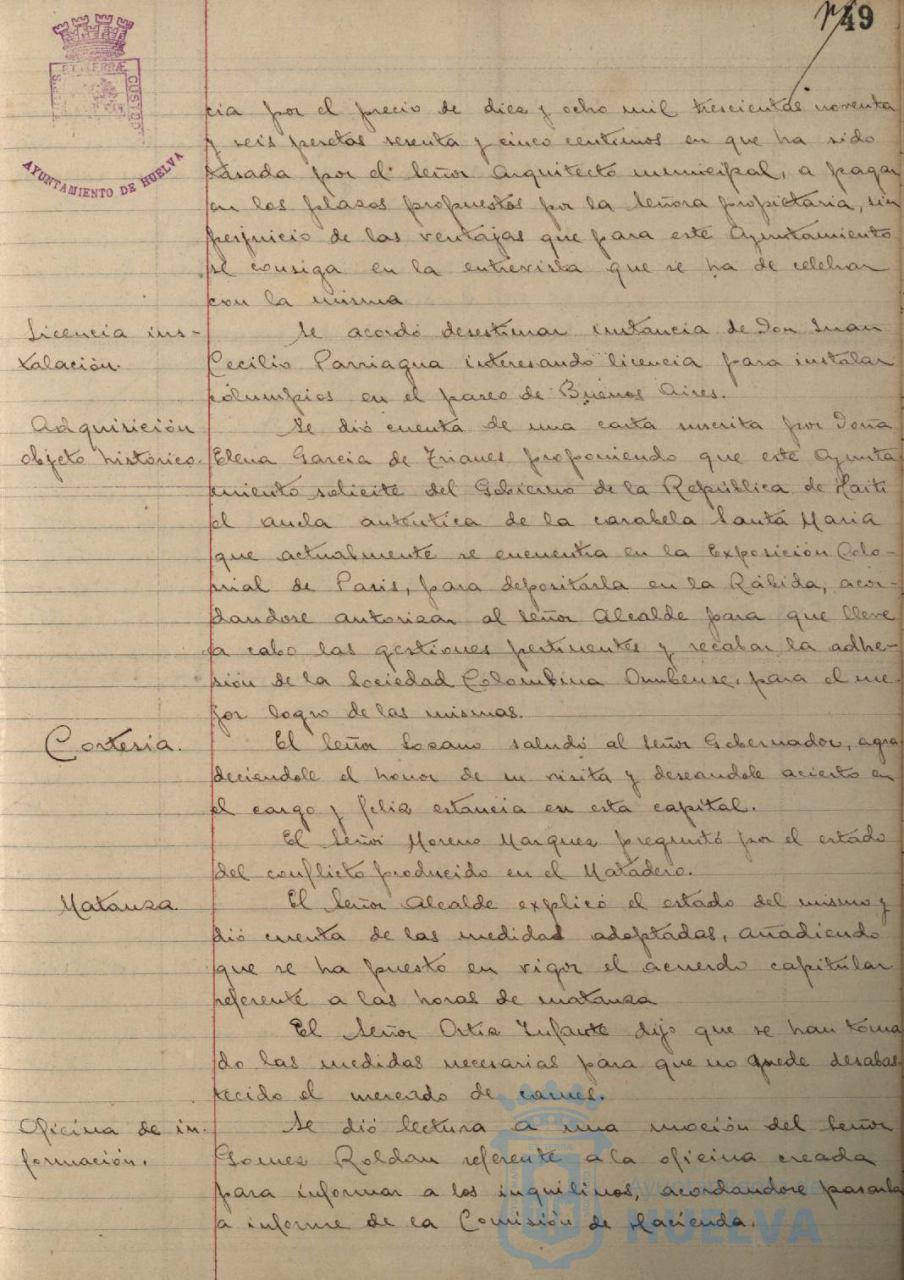 49
ET TERRÆ CUSTOD
AYUNTAMIENTO DE HUELVA
cia por el precio de diez y ocho mil trescientas noventa
y seis pesetas sesenta y cinco centimos en que ha sido
tasada por el Señor Arquitecto municipal, a pagar
en los plazos propuestos por la Señora propietaria, sin
perjuicio de las ventajas que para este Ayuntamiento
se consiga en la entrevista que se ha de celebrar
con la misma
Licencia ins-
talación.
Se acordó desestimar instancia de Don Juan
Cecilio Parriagua interesando licencia para instalar
columpios en el paseo de Buenos Aires.
Adquisición
objeto histórico.
Se dió cuenta de una carta suscrita por Doña
Elena Garcia de Trianes proponiendo que este Ayunta
miento solicite del Gobierno de la República de Haiti
el ancla auténtica de la carabela Santa Maria
que actualmente se encuentra en la Exposición Colo-
nial de Paris, para depositarla en la Rábida, acor-
dandose autorizar al Señor Alcalde para que lleve
a cabo las gestiones pertinentes y recabar la adhe-
sión de la Sociedad Colombina Onubense, para el me-
jor logro de las mismas.
Cortesia.
El Señor Lozano saludó al Señor Gobernador, agra
deciendole el honor de su visita y deseandole acierto en
el cargo y feliz estancia en esta capital.
El Señor Moreno Marquez preguntó por el estado
del conflicto producido en el Matadero.
Matanza.
El Señor Alcalde explicó el estado del mismo y
dió cuenta de las medidas adoptadas, añadiendo
que se ha puesto en vigor el acuerdo capitular
referente a las horas de matanza
El Señor Ortiz Infante dijo que se han toma
do las medidas necesarias para que no quede desabas
tecido el mercado de carnes.
Oficina de in-
formación.
Se dió lectura a una moción del Señor
Gomez Roldan referente a la oficina creada
para informar a los inquilinos, acordandose pasarla
a informe de la Comisión de Hacienda.
Ayuntamiento de
HUELVA